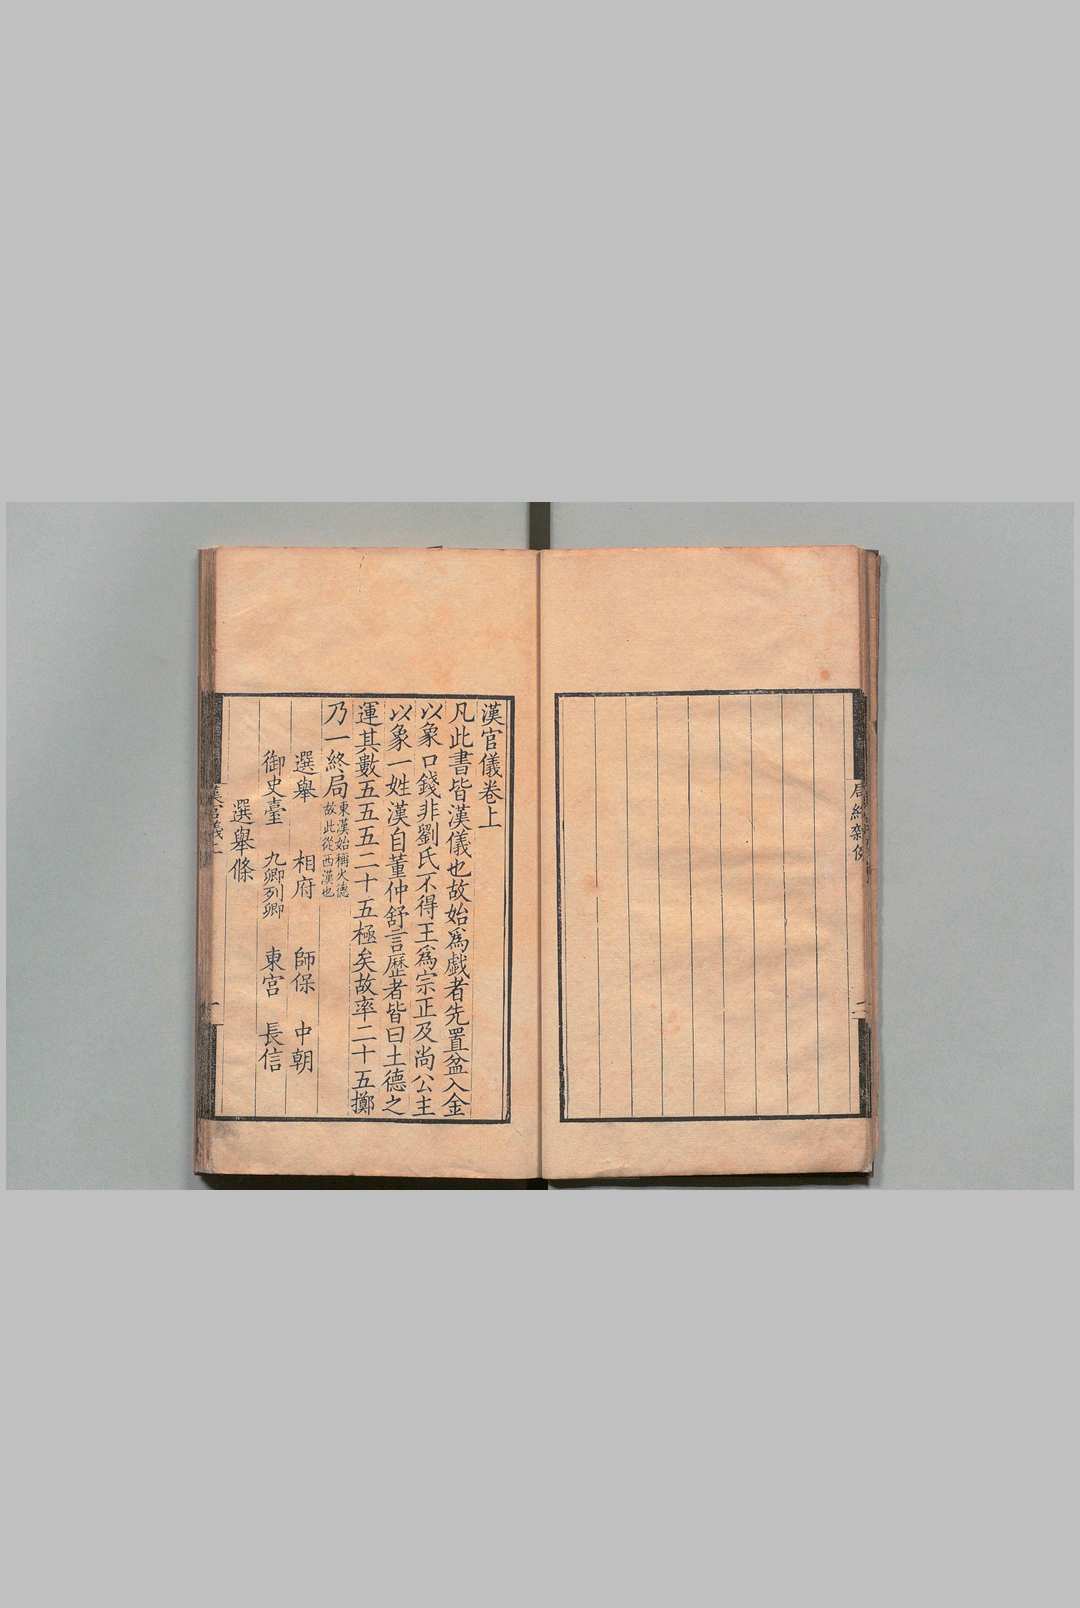 漢官儀卷上
凡此書皆漢儀也故始爲戯者先置盆入金
以象口錢非劉氏不得王爲宗正及尚公主
以象一姓漢自董仲舒言歷者皆曰土德之
運其數五五五二十五極矣故率二十五擲
乃一終局東漢始稱火德
故此從西漢也
選舉 相府 師保 中朝
御史臺 九卿列卿 東宮 長信
選舉條
漢官儀上